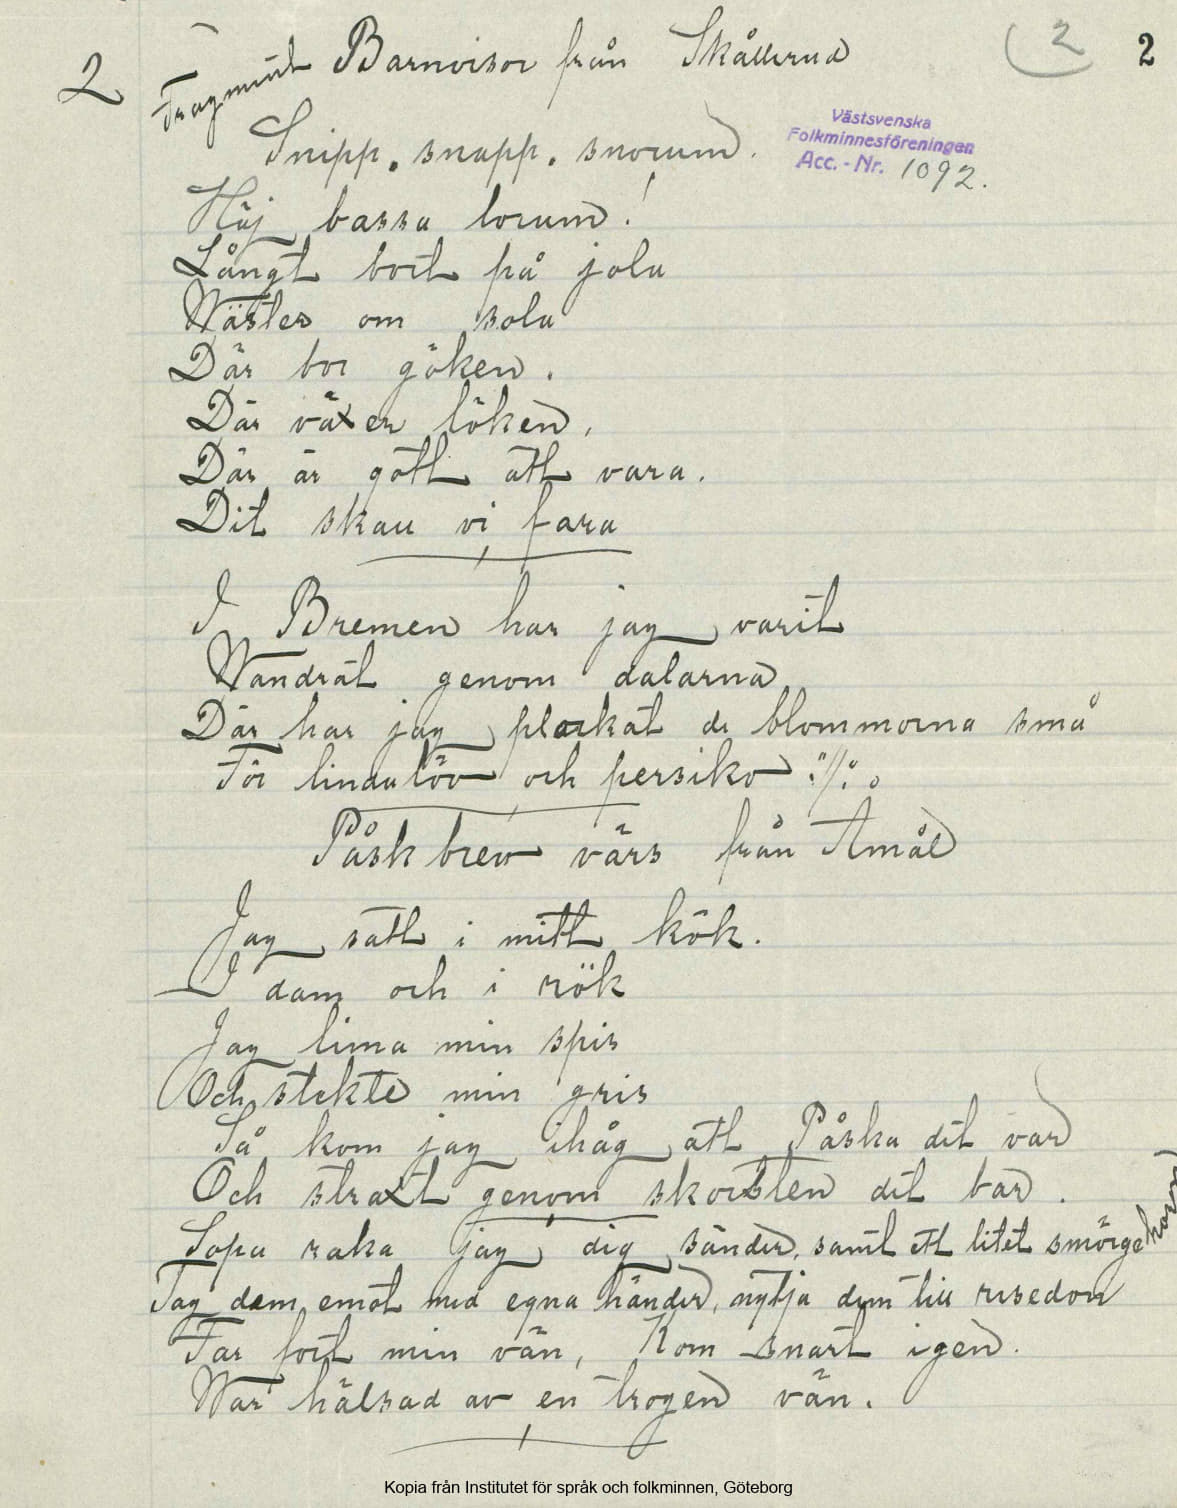 2
2
2
Fragment Barnvisor från Skållerud
Västsvenska
Folkminnesföreningen
Acc.-Nr. 1092.
Snipp. snapp. snorum.
Häj bassa lorum!
Långt bort på jola
Wäster om sola
Där bor göken.
Där växer löken.
Där är gott att vara.
Dit skall vi fara
I Bremen har jag varit
Wandrat genom dalarna
Där har jag plockat de blommorna små
För lindalöv och persiko :/:
Påskbrev värs från Åmål
Jag satt i mitt kök.
I dam och i rök
Jag lima min spis
Och stekte min gris
Så kom jag ihåg att Påska det var
Och straxt genom skorsten det bar.
Sopa raka jag dig sänder, samt ett litet smörgehorn
Tag dem emot med egna händer, nytja dem till resedon
Far fort min vän, Kom snart igen.
War hälsad av en trogen vän.
Kopia från Institutet för språk och folkminnen, Göteborg